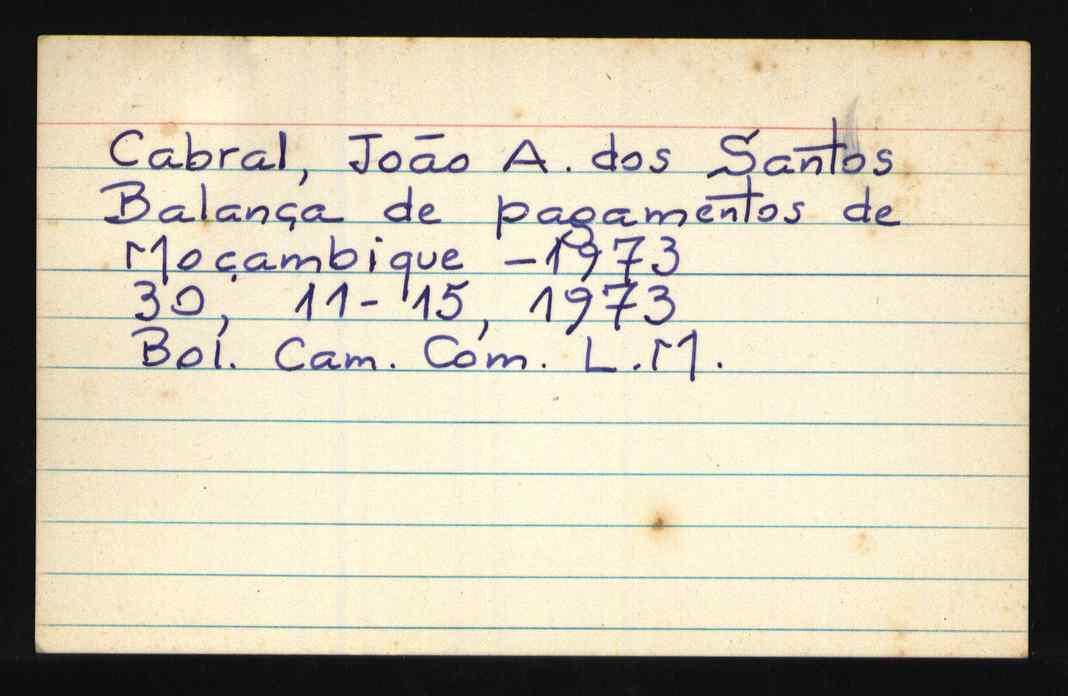 Cabral, João A. dos Santos
Balança de pagamentos de
Moçambique - 1973
30, 11-15, 1973
Bol. Cam. Com. L.M.